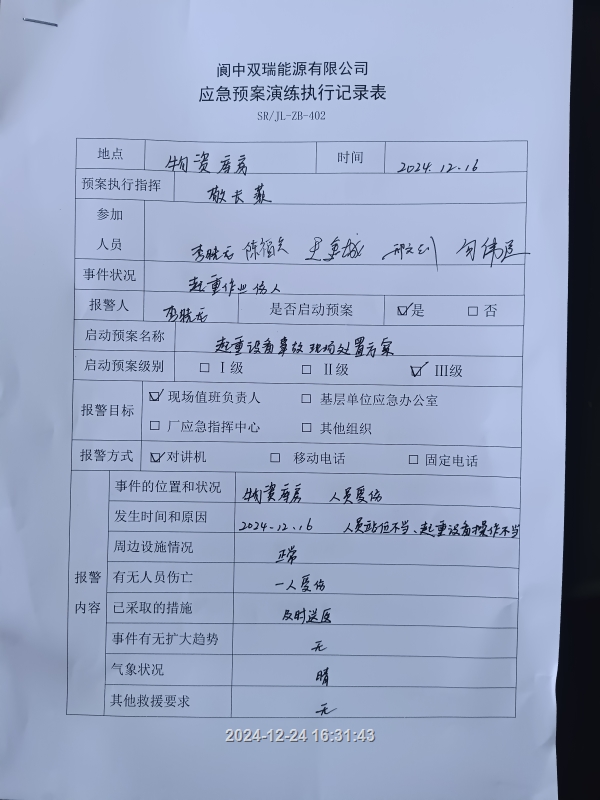 阆中双瑞能源有限公司
应急预案演练执行记录表
SR/JL-ZB-402
地点 物资库房 时间 2024.12.16
预案执行指挥 敬长
参加
人员 李晓龙
事件状况 起重作业伤人
报警人 李晓龙 是否启动预案 ☑是 ☐否
启动预案名称 起重设备事故现场处置方案
启动预案级别 ☐ Ⅰ级 ☐ Ⅱ级 ☑ Ⅲ级
报警目标 ☑ 现场值班负责人 ☐ 基层单位应急办公室
☐ 厂应急指挥中心 ☐ 其他组织
报警方式 ☑对讲机 ☐ 移动电话 ☐ 固定电话
报警
内容
事件的位置和状况 物资库房 人员受伤
发生时间和原因 2024.12.16 人员站位不当、起重设备操作不当
周边设施情况 正常
有无人员伤亡 一人受伤
已采取的措施 及时送医
事件有无扩大趋势 无
气象状况 晴
其他救援要求 无
2024-12-24 16:31:43